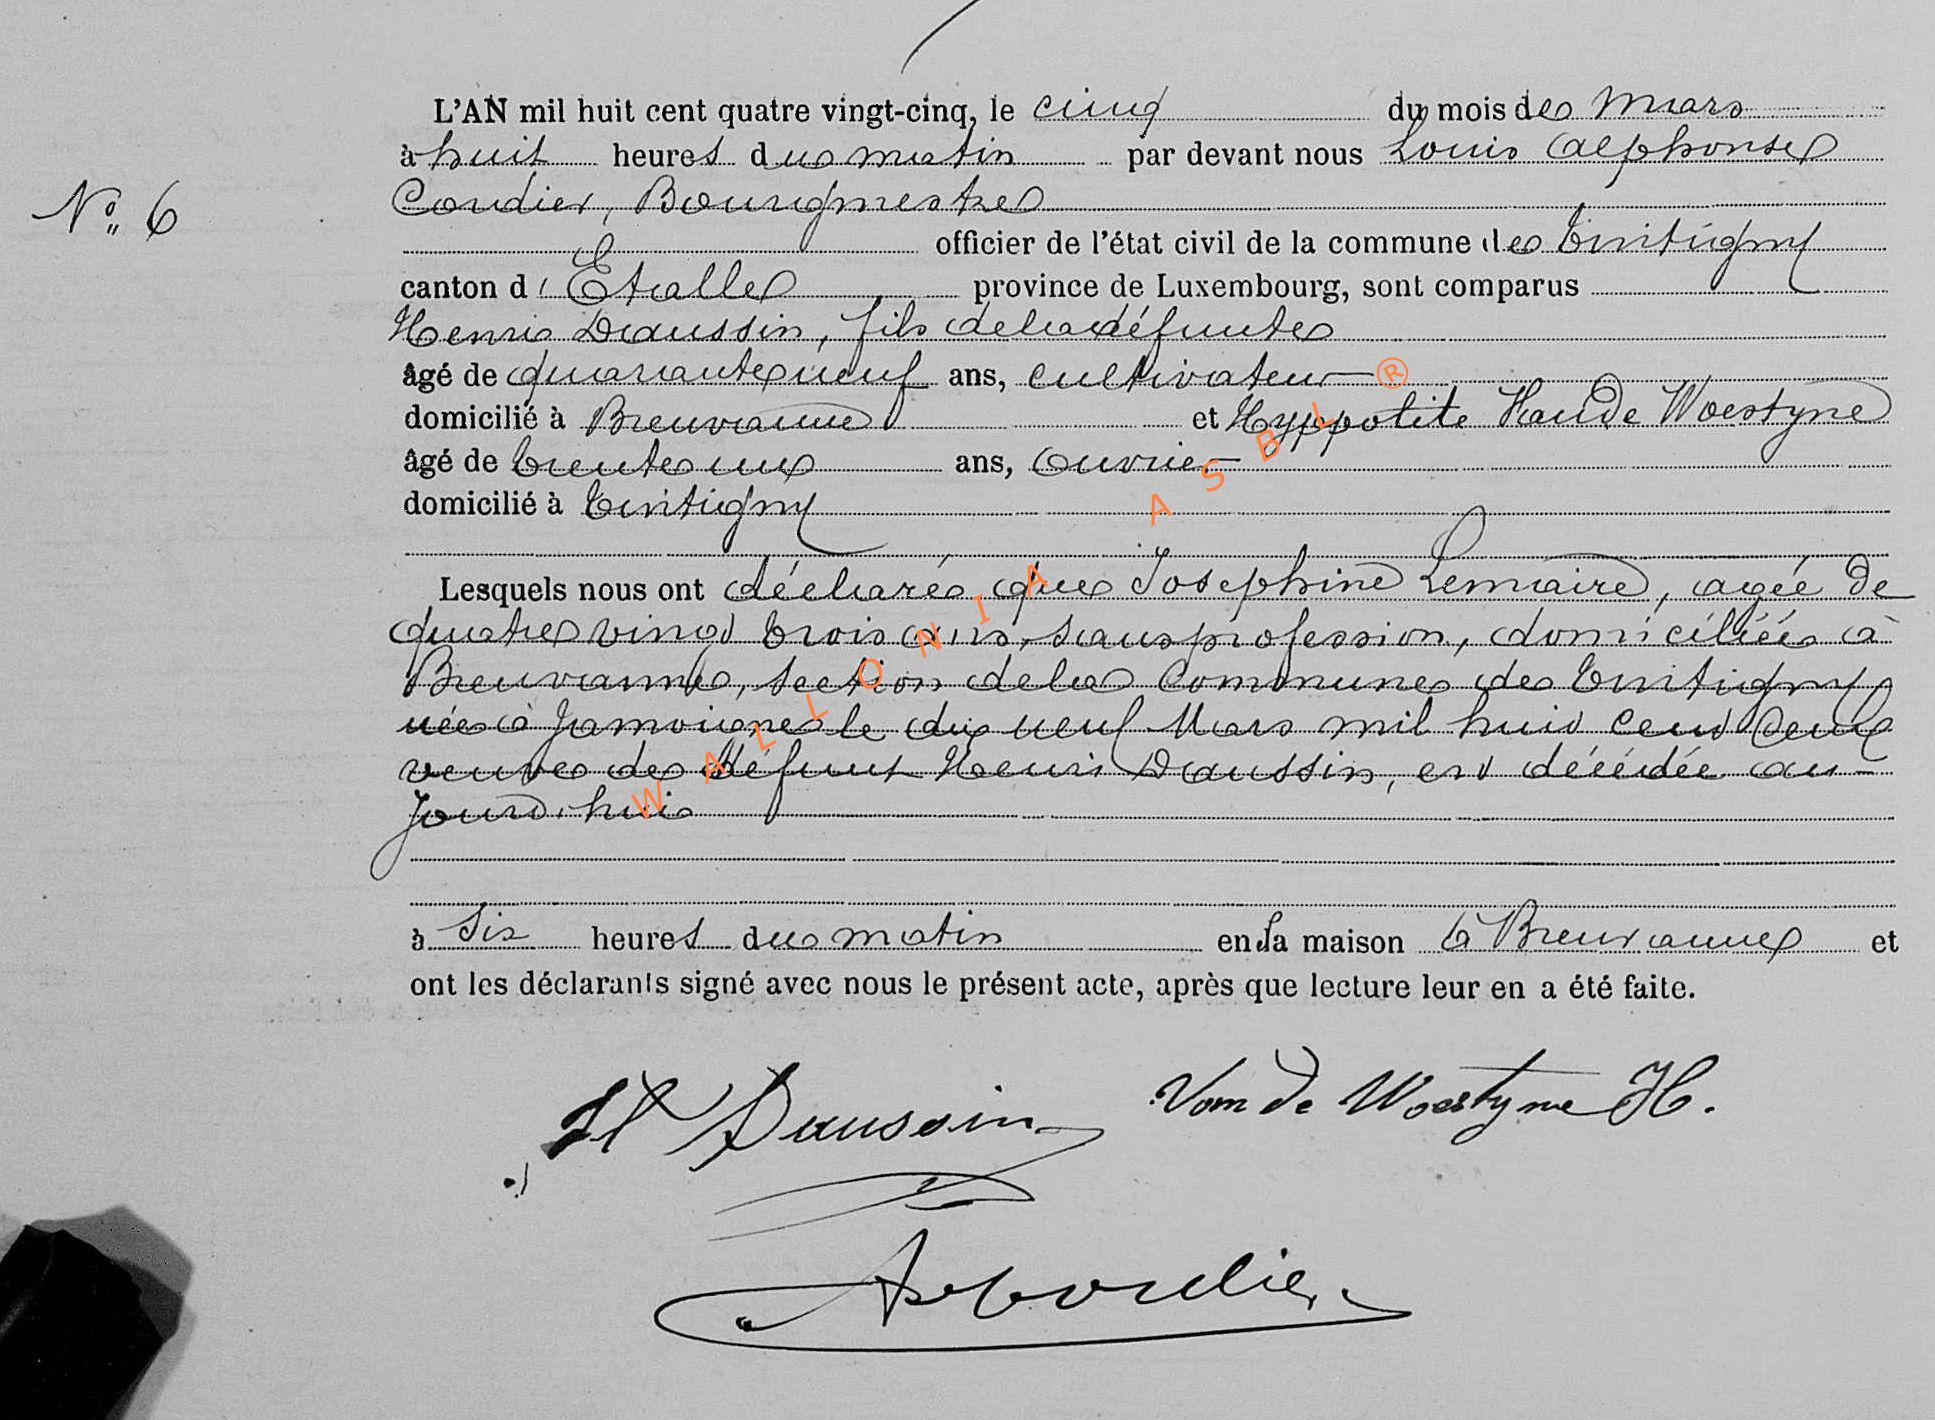 L'AN mil huit cent quatre vingt-cinq, le cinq du mois de mars
à huit heures du matin par devant nous Louis Alphonse
Cordier, Bourgmestre
N° 6
officier de l'état civil de la commune de Tintigny
canton d'Etalle province de Luxembourg, sont comparus
Henri Daussin, fils de la défunte
âgé de quarante neuf ans, cultivateur
domicilié à Breuvanne et Hyppolite Vande Woestyne
âgé de trente un ans, ouvrier
domicilié à Tintigny
Lesquels nous ont déclaré que Josephine Lemaire, agée de
quatre vingt trois ans, sans profession, domiciliée à
Breuvanne, section de la Commune de Tintigny
née à Jamoigne le dix neuf Mars mil huit cent deux
veuve de défunt Henri Daussin, est décédée au-
jourd'hui
à six heures du matin en sa maison à Breuvanne et
ont les déclarants signé avec nous le présent acte, après que lecture leur en a été faite.
H Daussin Van de Woestyne H.
Cordier
WALLONIA ASBL ®